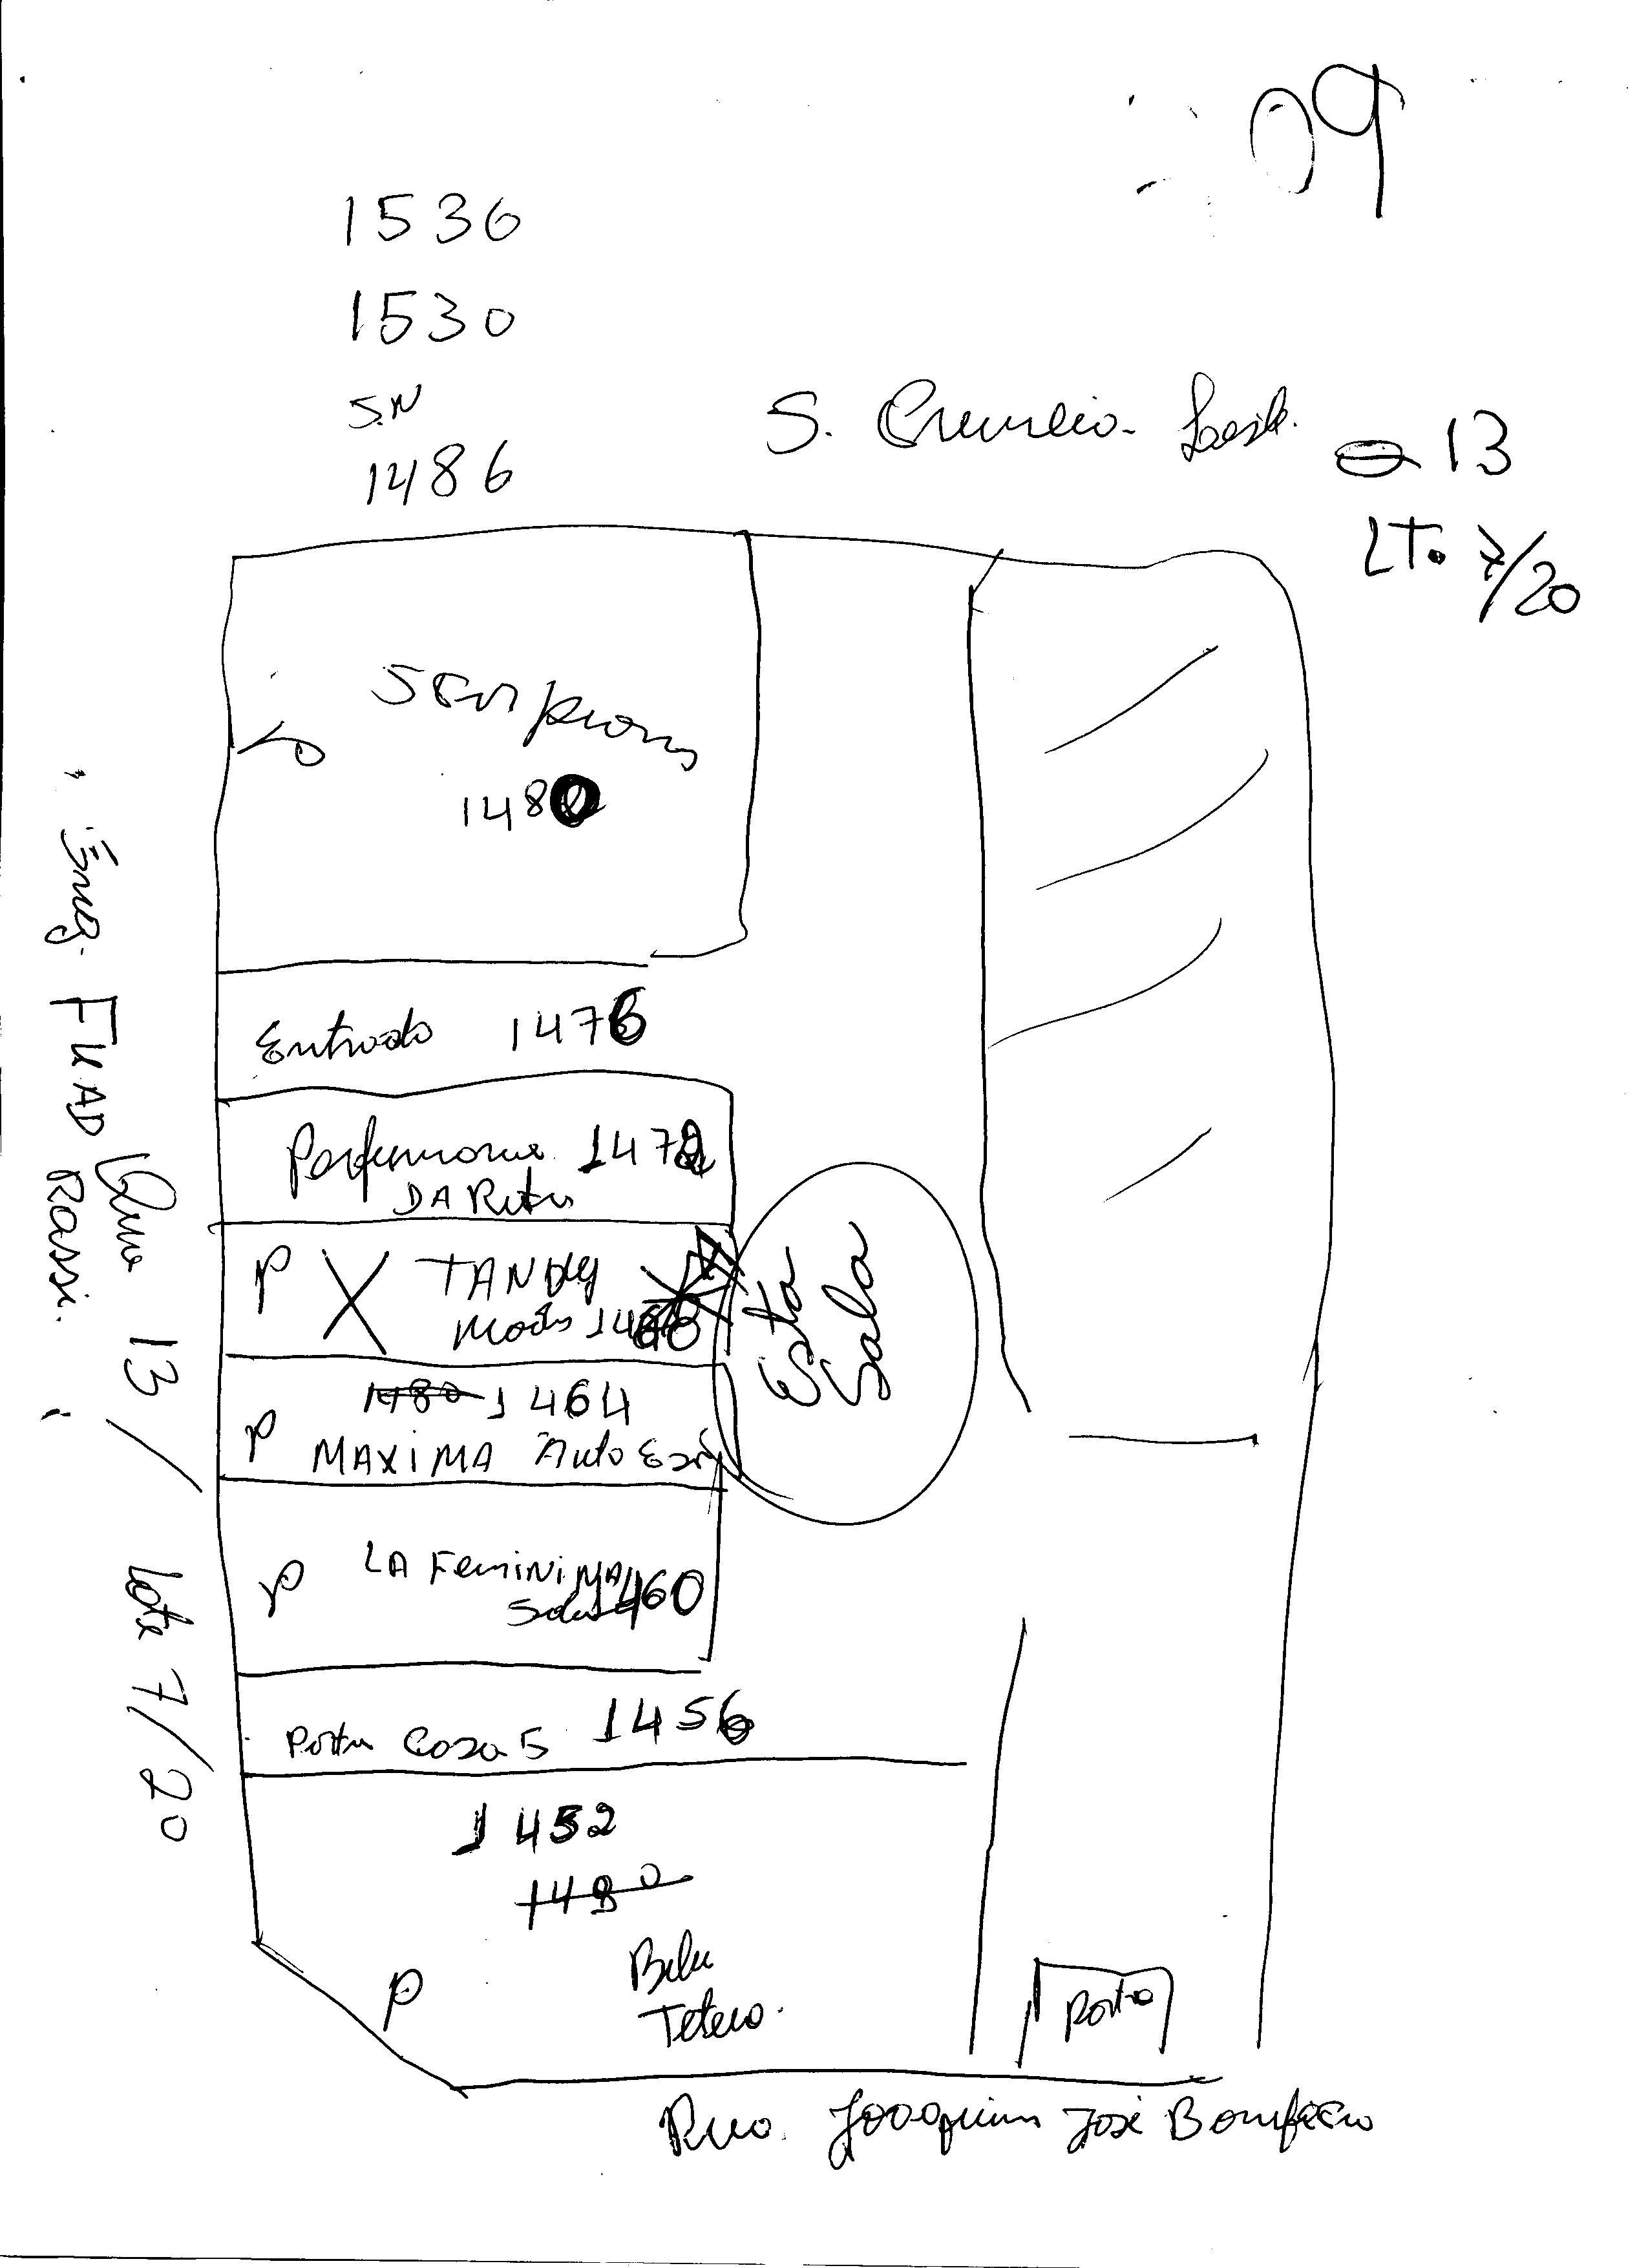 09
1536
1530
S.N
1486
S.
13
LT. 7/20
1480
Entrada 1476
Perfumaria 1472
DA Rita
P X TANDY
Moda 1468
1480 1464
P MAXIMA Auto Esc
P LA FemiNiNA
Sala 1460
Porta Casa 5 1456
1452
1480
P Bela
Teteia.
Porta
Rua. Joaquim José Bonifácio
Esta
Sala
Eng. FUAD
Rassi.
Qua 13 / Lote 7/20